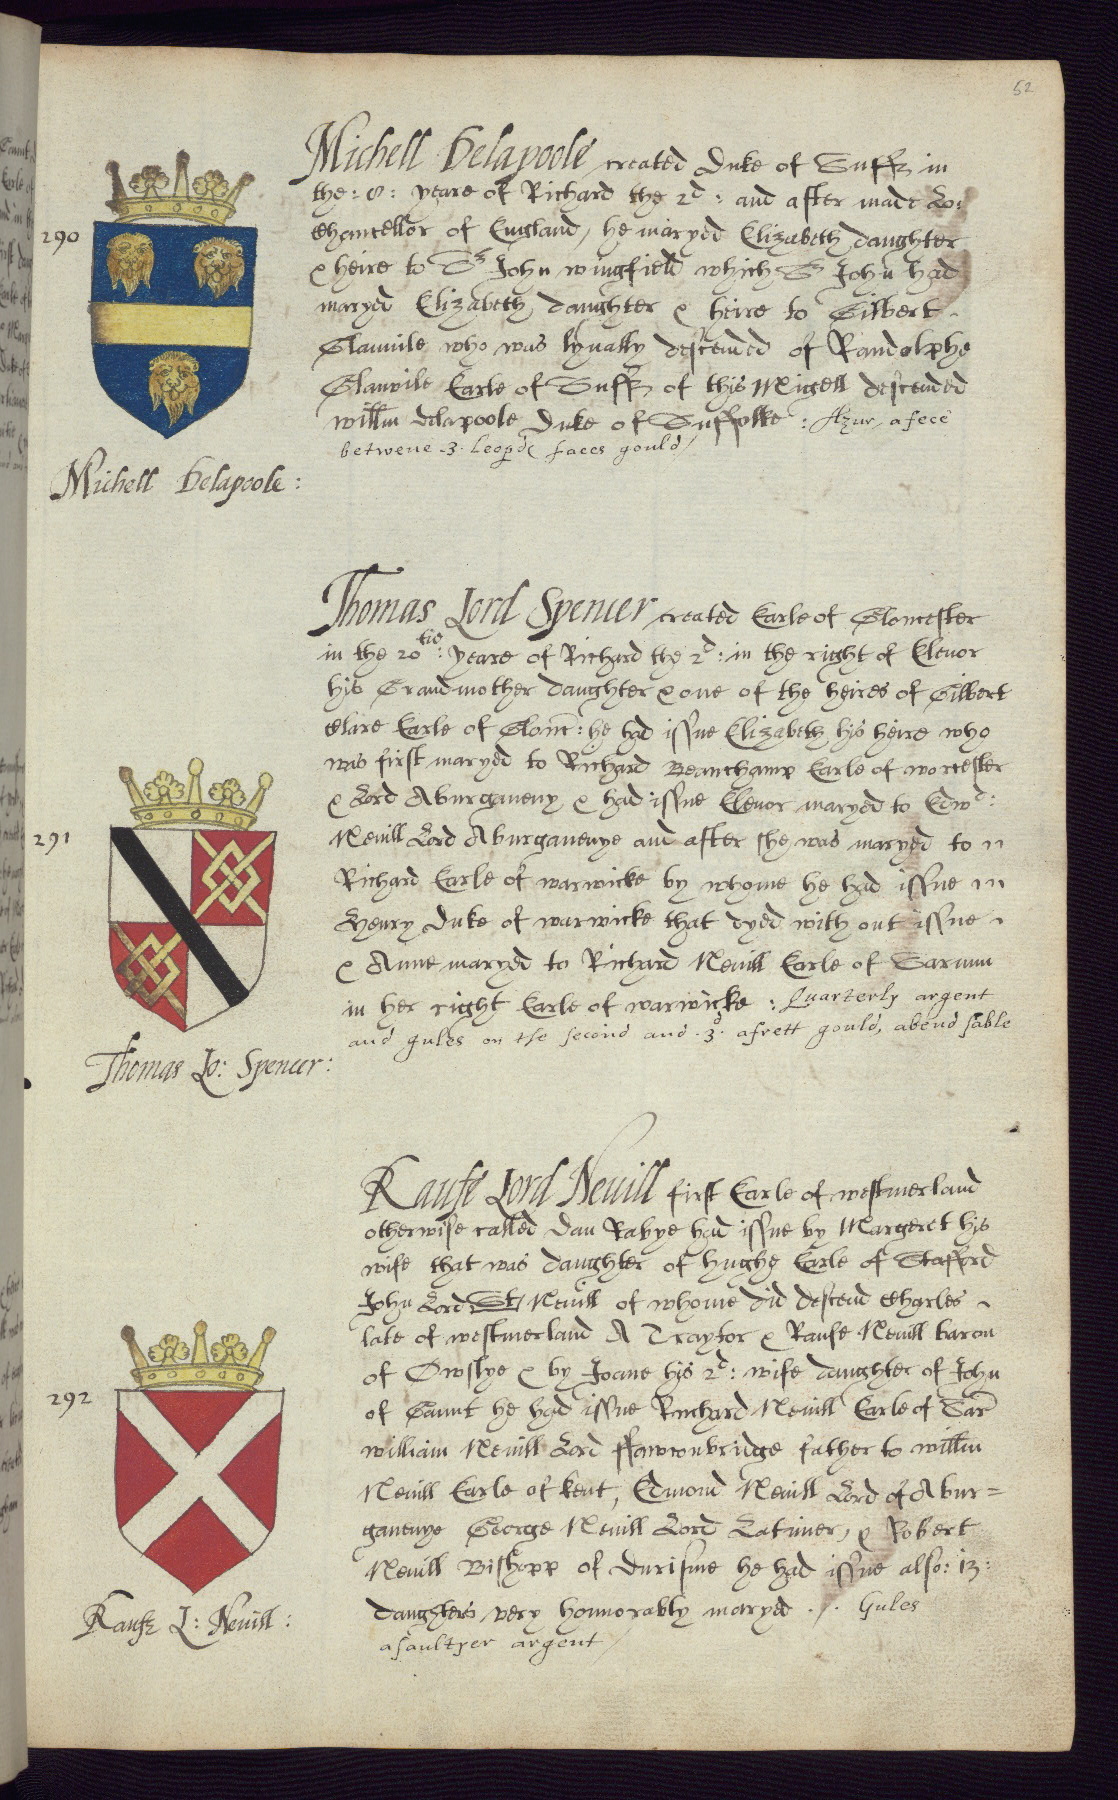 52
290
Michell Delapoole created Duke of Suff in
the : 8 : yeare of Richard the 2d : and after made Lo:
Chancellor of England, he maryed Elizabeth daughter
& heire to Sr John wingfield which Sr John had
maryed Elizabeth daughter & heire to Gilbert
Glanvile who was lynally descended of Randolphe
Glanvile Earle of Suff of this Migell descended
willm delapoole Duke of Suffolke : Azur, a fece
betwene .3. leopd faces gould
Michell Delapoole :
291
Thomas Lord Spencer created Earle of Gloucester
in the 20tie : yeare of Richard the 2d : in the right of Elenor
his Grandmother daughter & one of the heires of Gilbert
Clare Earle of Glouc : he had issue Elizabeth his heire who
was first maryed to Richard Beauchamp Earle of worcester
& Lord Aburgaueny & had issue Elenor maryed to Edwd :
Nevill Lord Aburgauenye and after she was maryed to
Richard Earle of warwicke by whome he had issue
Henry Duke of warwicke that dyed with out issue
& Anne maryed to Richard Nevill Earle of Sarum
in her right Earle of warwicke : Quarterly argent
and gules on the second and .3d. a frett gould, a bend sable
Thomas Lo: Spencer :
292
Raufe Lord Nevill first Earle of westmerland
otherwise called Dan Rabye had issue by Margeret his
wife that was daughter of hughe Earle of Stafford
John Lord Nevill of whome did descend Charles
late of westmerland A Traytor & Raufe Nevill baron
of Owslye & by Joane his 2d : wife daughter of John
of Gaunt he had issue Richard Nevill Earle of Sar
william Nevill Lord ffawconbridge father to willm
Nevill Earle of kent, Edmond Nevill Lord of Abur=
gauenye George Nevill Lord Latimer, & Robert
Nevill Bishopp of Durisme he had issue also : 13 :
daughters very honnorably maryed ./. Gules
a saultyer argent
Raufe L : Nevill :